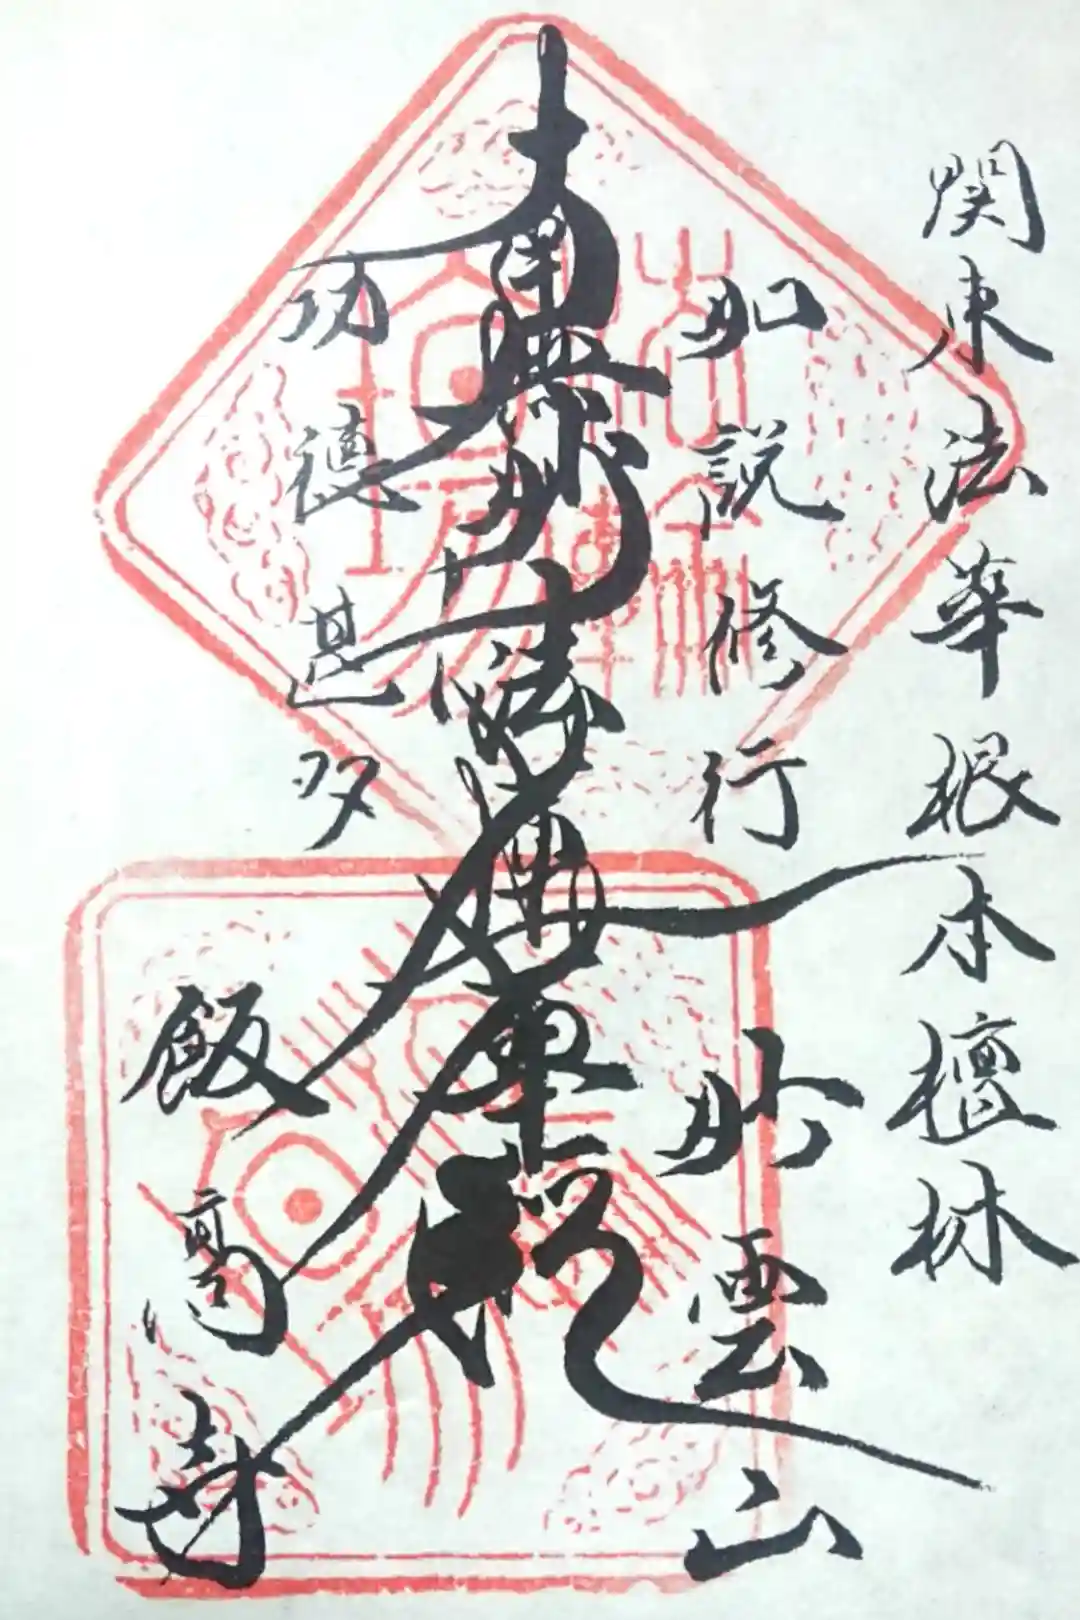 関東法華根本檀林
如説修行
妙雲山
南無妙法蓮華経
功徳甚多
飯高寺